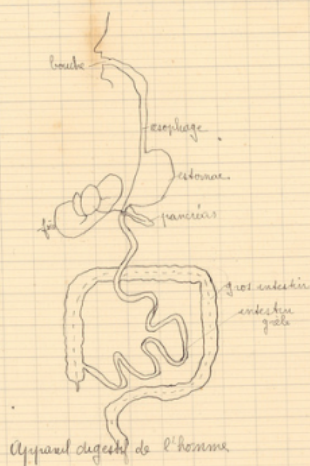 bouche
œsophage
estomac
pancréas
foie
gros intestin
intestin
grêle
Appareil digestif de l'homme